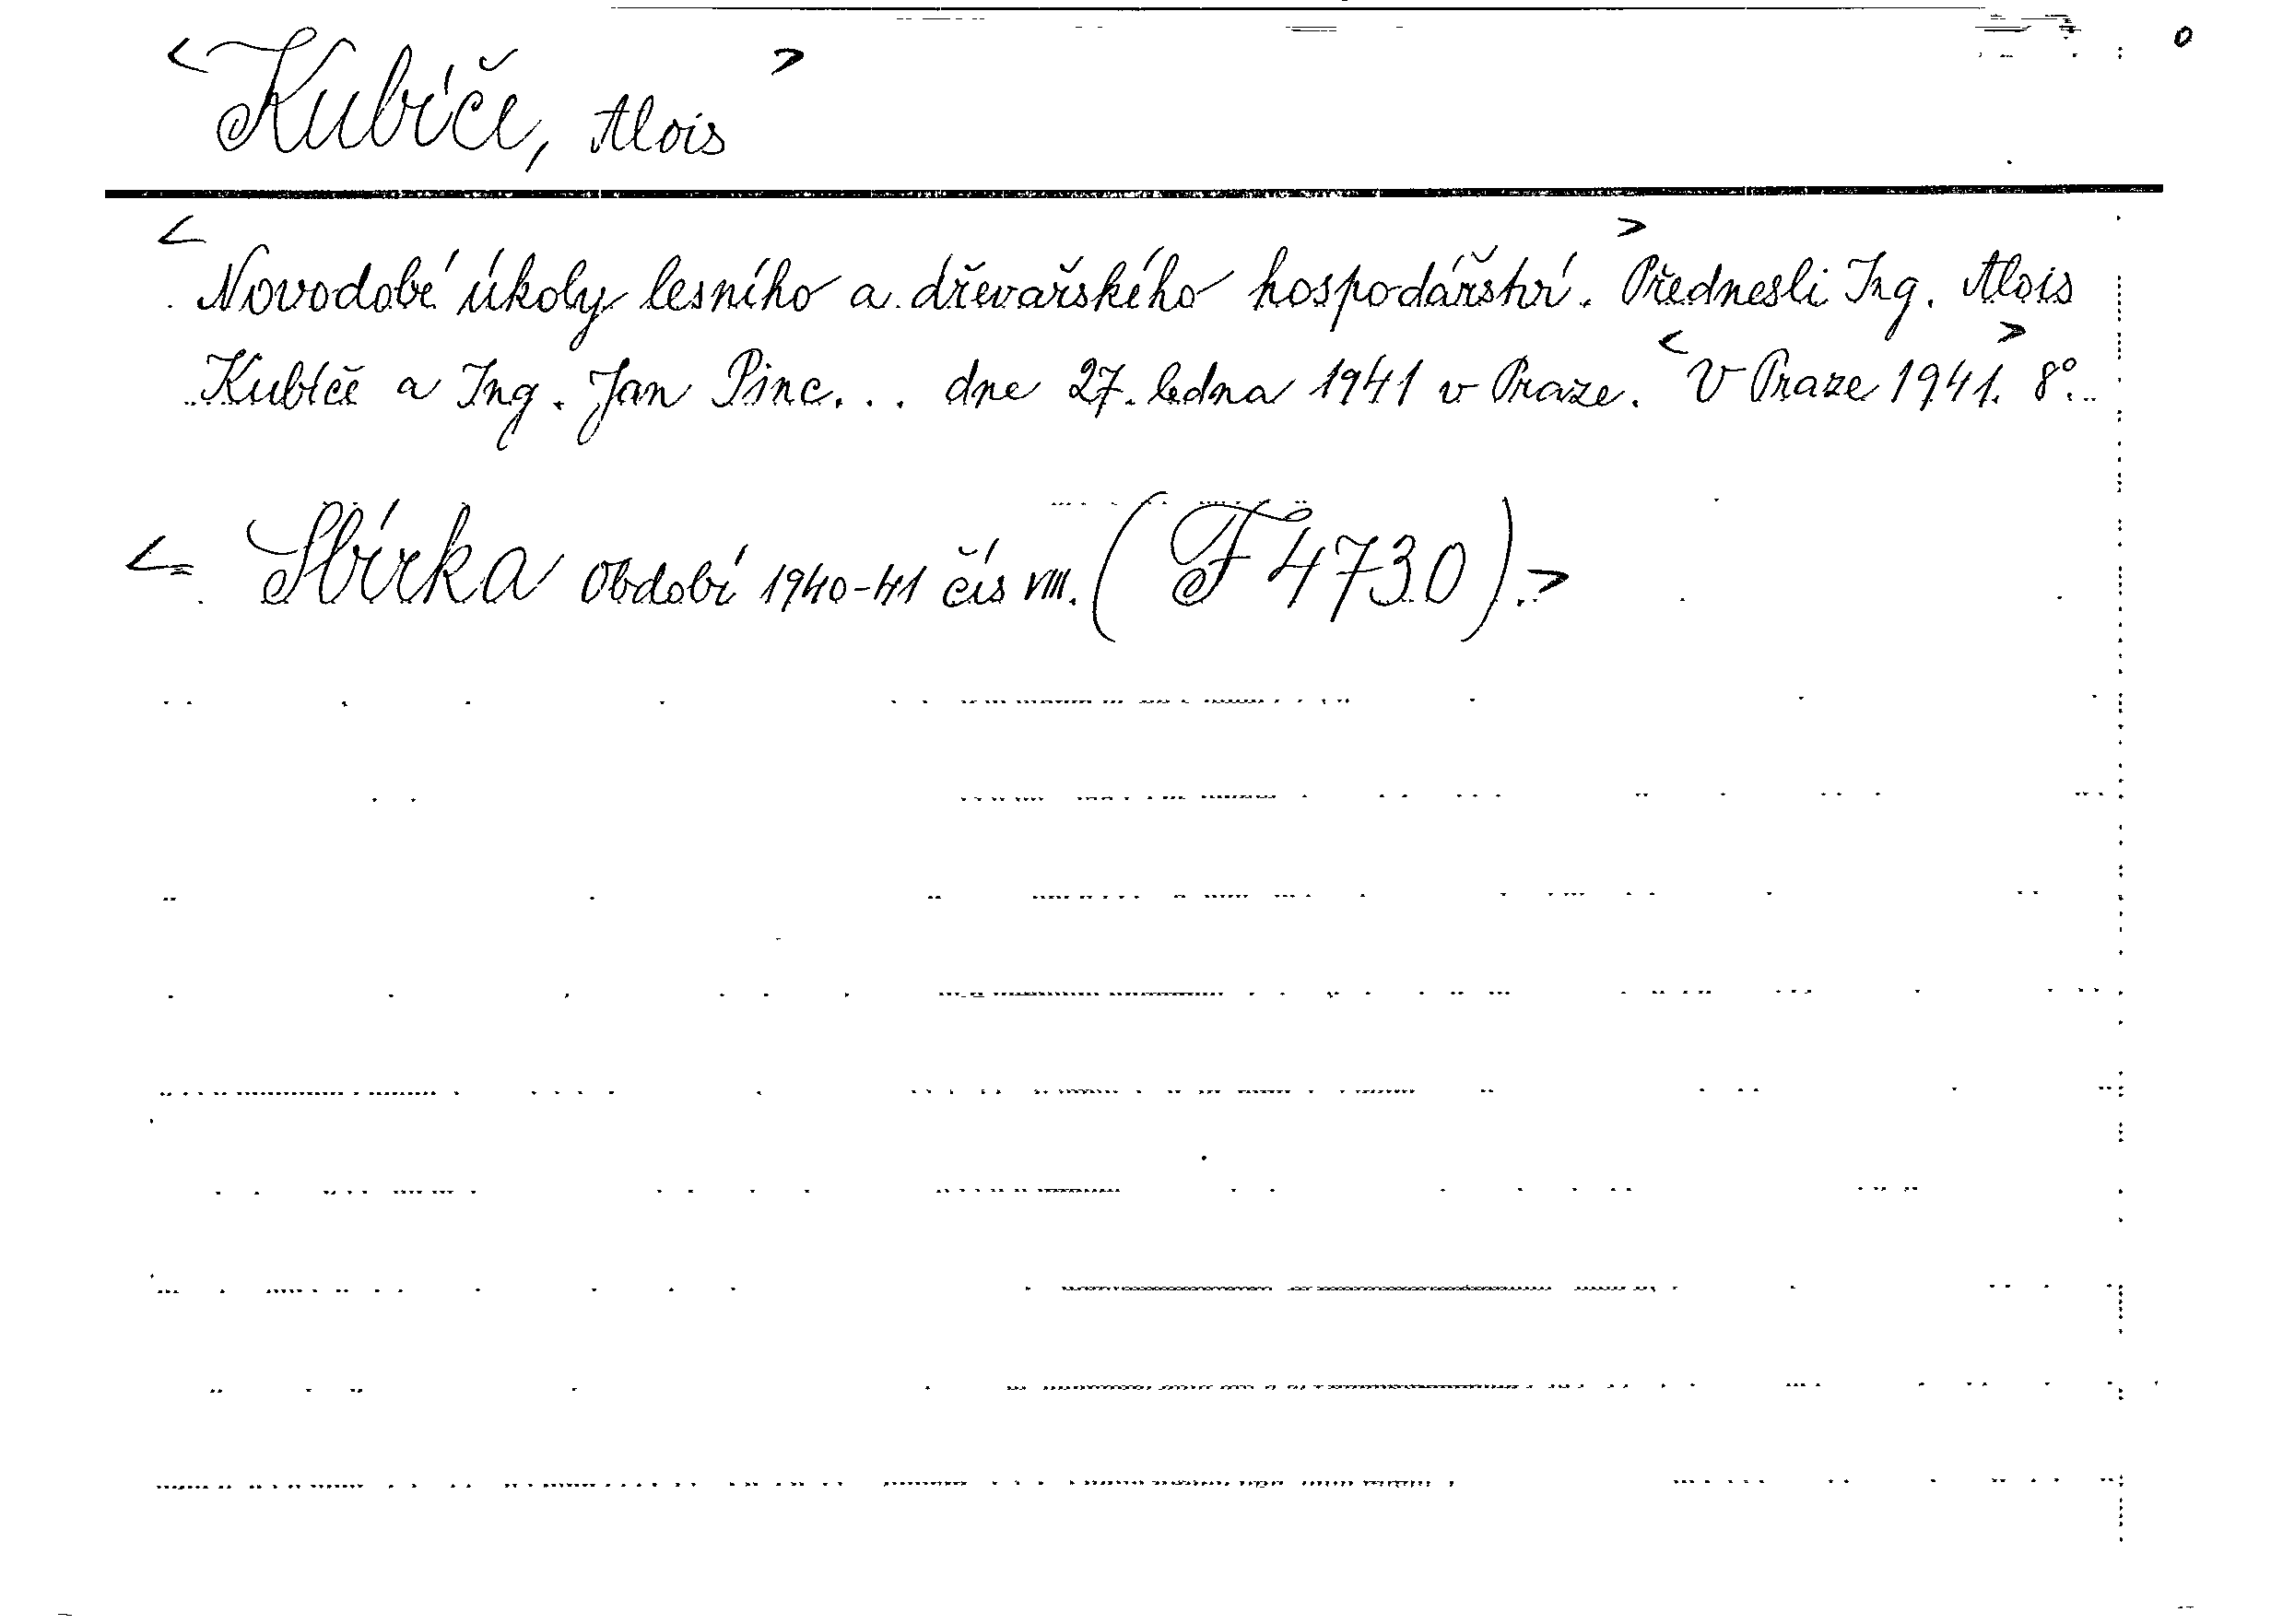 <Kubíče, Alois>
0
<Novodobé úkoly lesního a dřevařského hospodářství.> Přednesli Ing. Alois
Kubíče a Ing. Jan Pinc... dne 27. ledna 1941 v Praze. <V Praze 1941.> 8°.
<= Sbírka období 1940-41 čís VIII. (F 4730).>